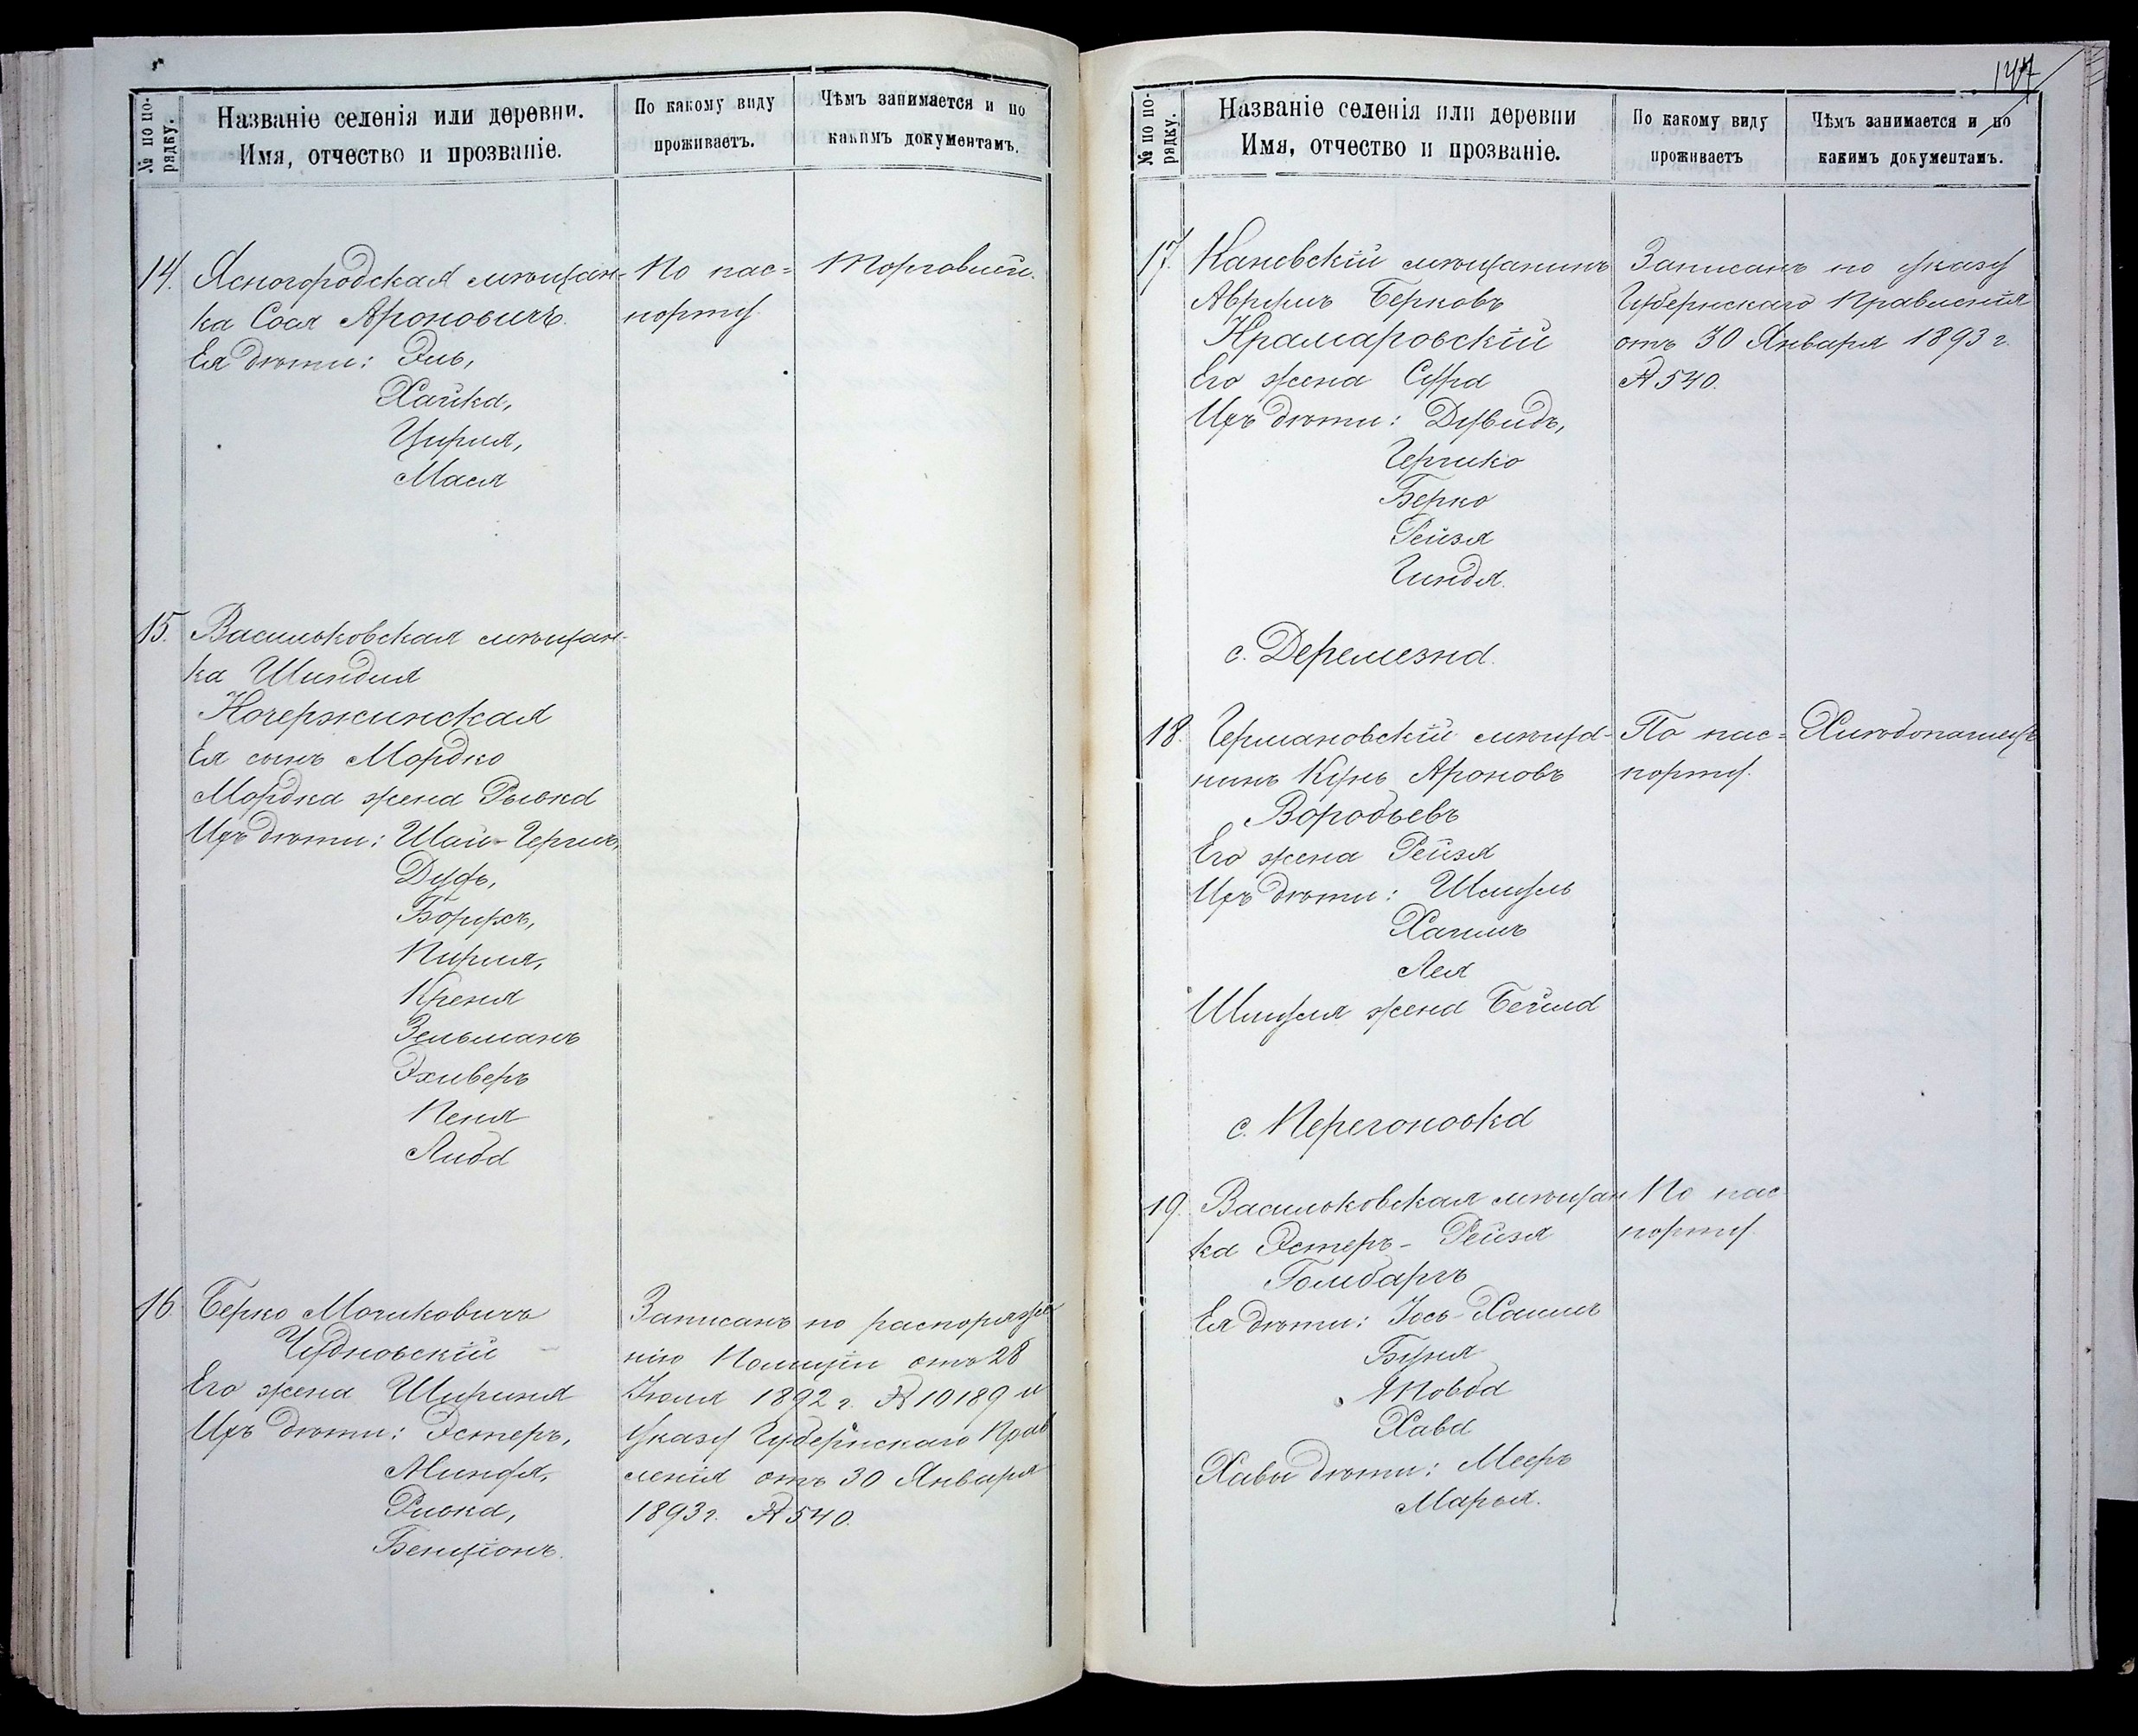 № по по-
рядку.
Названіе селенія или деревни.
Имя, отчество и прозваніе.
По какому виду
проживаетъ.
Чѣмъ занимается и по
какимъ документамъ.
14. Ясногородская мѣщан-
ка Сося Ароновичъ.
Ея дѣти: Эль,
Хайка,
Цирля,
Мася
По пас=
порту.
Торговлей.
15. Васильковская мѣщан-
ка Шиндля
Кочержинская
Ея сынъ Мордко
Мордка жена Рывка
Ихъ дѣти: Шай-Гершъ,
Дуфъ,
Борухъ,
Пирля,
Креня
Зельманъ
Эхиверъ
Пеня
Либа
16. Берко Мошковичъ
Чудновскій
Его жена Ширина
Ихъ дѣти: Эстеръ,
Ривка,
Бенціонъ.
Записанъ по распоряже
нію Полиціи отъ 28
Іюля 1892 г. № 10189 и
Указу Губернскаго Прав
ленія отъ 30 Января
1893 г. № 540.
147
№ по по-
рядку.
Названіе селенія или деревни
Имя, отчество и прозваніе.
По какому виду
проживаетъ
Чѣмъ занимается и по
какимъ документамъ.
17. Каневскій мѣщанинъ
Аврумъ Берковъ
Крамаровскій
Его жена Сура
Ихъ дѣти: Дувидъ,
Гершко
Берко
Рейзя
Гиндя.
Записанъ по указу
Губернскаго Правленія
отъ 30 Января 1893 г.
№ 540.
с. Деремезна.
18. Германовскій мѣща-
нинъ Кунъ Ароновъ
Воробьевъ
Его жена Рейзя
Ихъ дѣти: Шмуль
Хаимъ
Лея
Шмуля жена Бейла
По пас=
порту.
Хлѣбопашецъ
с. Перегоновка
19. Васильковская мѣщан
ка Эстеръ-Рейзя
Гомбаргъ
Ея дѣти: Іось-Хаимъ
Буня
Товба
Хава
Хавы дѣти: Мееръ
Марья.
По пас
порту.